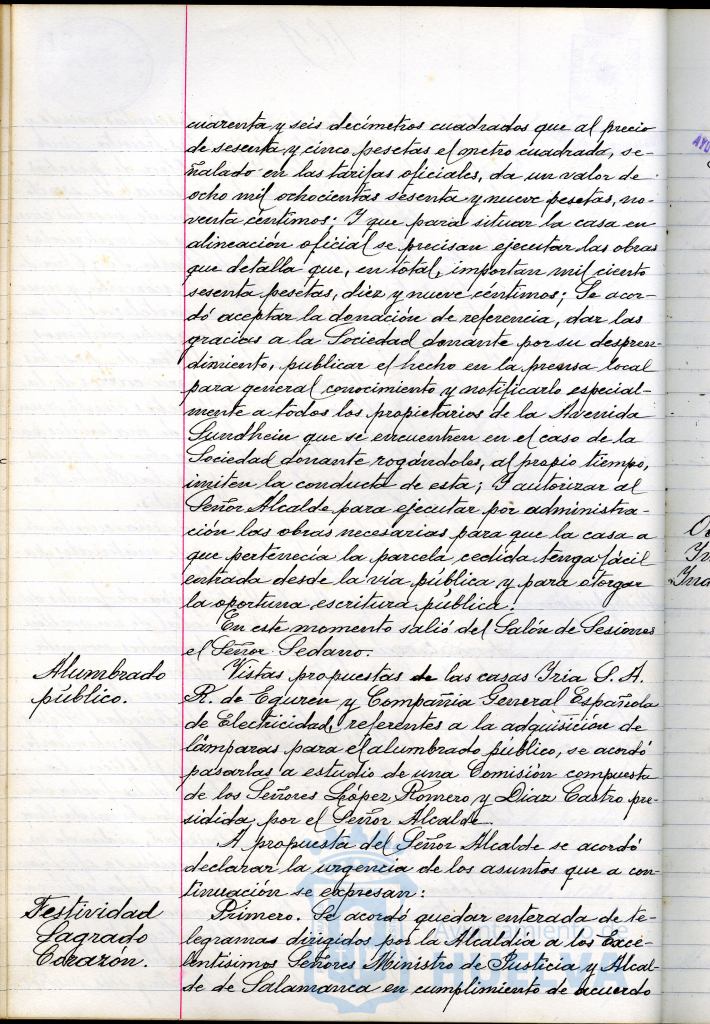 cuarenta y seis decímetros cuadrados que al precio
de sesenta y cinco pesetas el metro cuadrado, se-
ñalado en las tarifas oficiales, da un valor de
ocho mil ochocientas sesenta y nueve pesetas, no-
venta céntimos; Y que para situar la casa en
alineación oficial se precisan ejecutar las obras
que detalla que, en total, importan mil ciento
sesenta pesetas, diez y nueve céntimos; Se acor-
dó aceptar la donación de referencia, dar las
gracias a la Sociedad donante por su despren-
dimiento, publicar el hecho en la prensa local
para general conocimiento y notificarlo especial-
mente a todos los propietarios de la Avenida
Sundhein que se encuentren en el caso de la
Sociedad donante rogándoles, al propio tiempo,
imiten la conducta de esta; Y autorizar al
Señor Alcalde para ejecutar por administra-
ción las obras necesarias para que la casa a
que pertenecía la parcela cedida tenga fácil
entrada desde la vía pública y para otorgar
la oportuna escritura pública.
En este momento salió del Salón de Sesiones
el Señor Sedano.
Alumbrado
público.
Vistas propuestas de las casas Iria S. A.
R. de Eguren y Compañia General Española
de Electricidad, referentes a la adquisición de
lámparas para el alumbrado público, se acordó
pasarlas a estudio de una Comisión compuesta
de los Señores López Romero y Diaz Castro pre-
sidida por el Señor Alcalde.
A propuesta del Señor Alcalde se acordó
declarar la urgencia de los asuntos que a con-
tinuación se expresan:
Festividad
Sagrado
Corazón.
Primero. Se acordó quedar enterada de te-
legramas dirigidos por la Alcaldia a los Exce-
lentísimos Señores Ministro de Justicia y Alcal-
de de Salamanca en cumplimiento de acuerdo
Ayuntamiento de
HUELVA